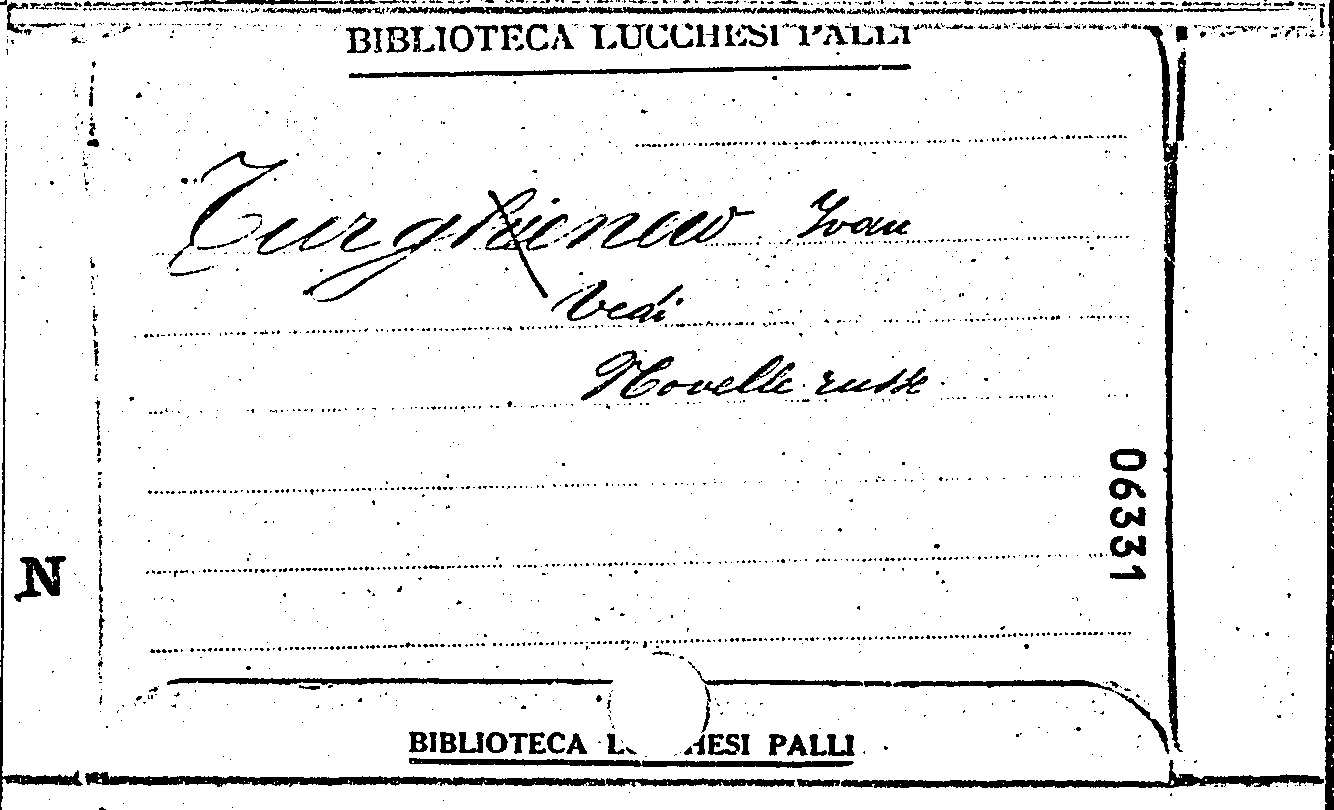 BIBLIOTECA LUCCHESI PALLI
Turghenew Ivan
Vedi
Novelle russe
06331
N
BIBLIOTECA LUCCHESI PALLI